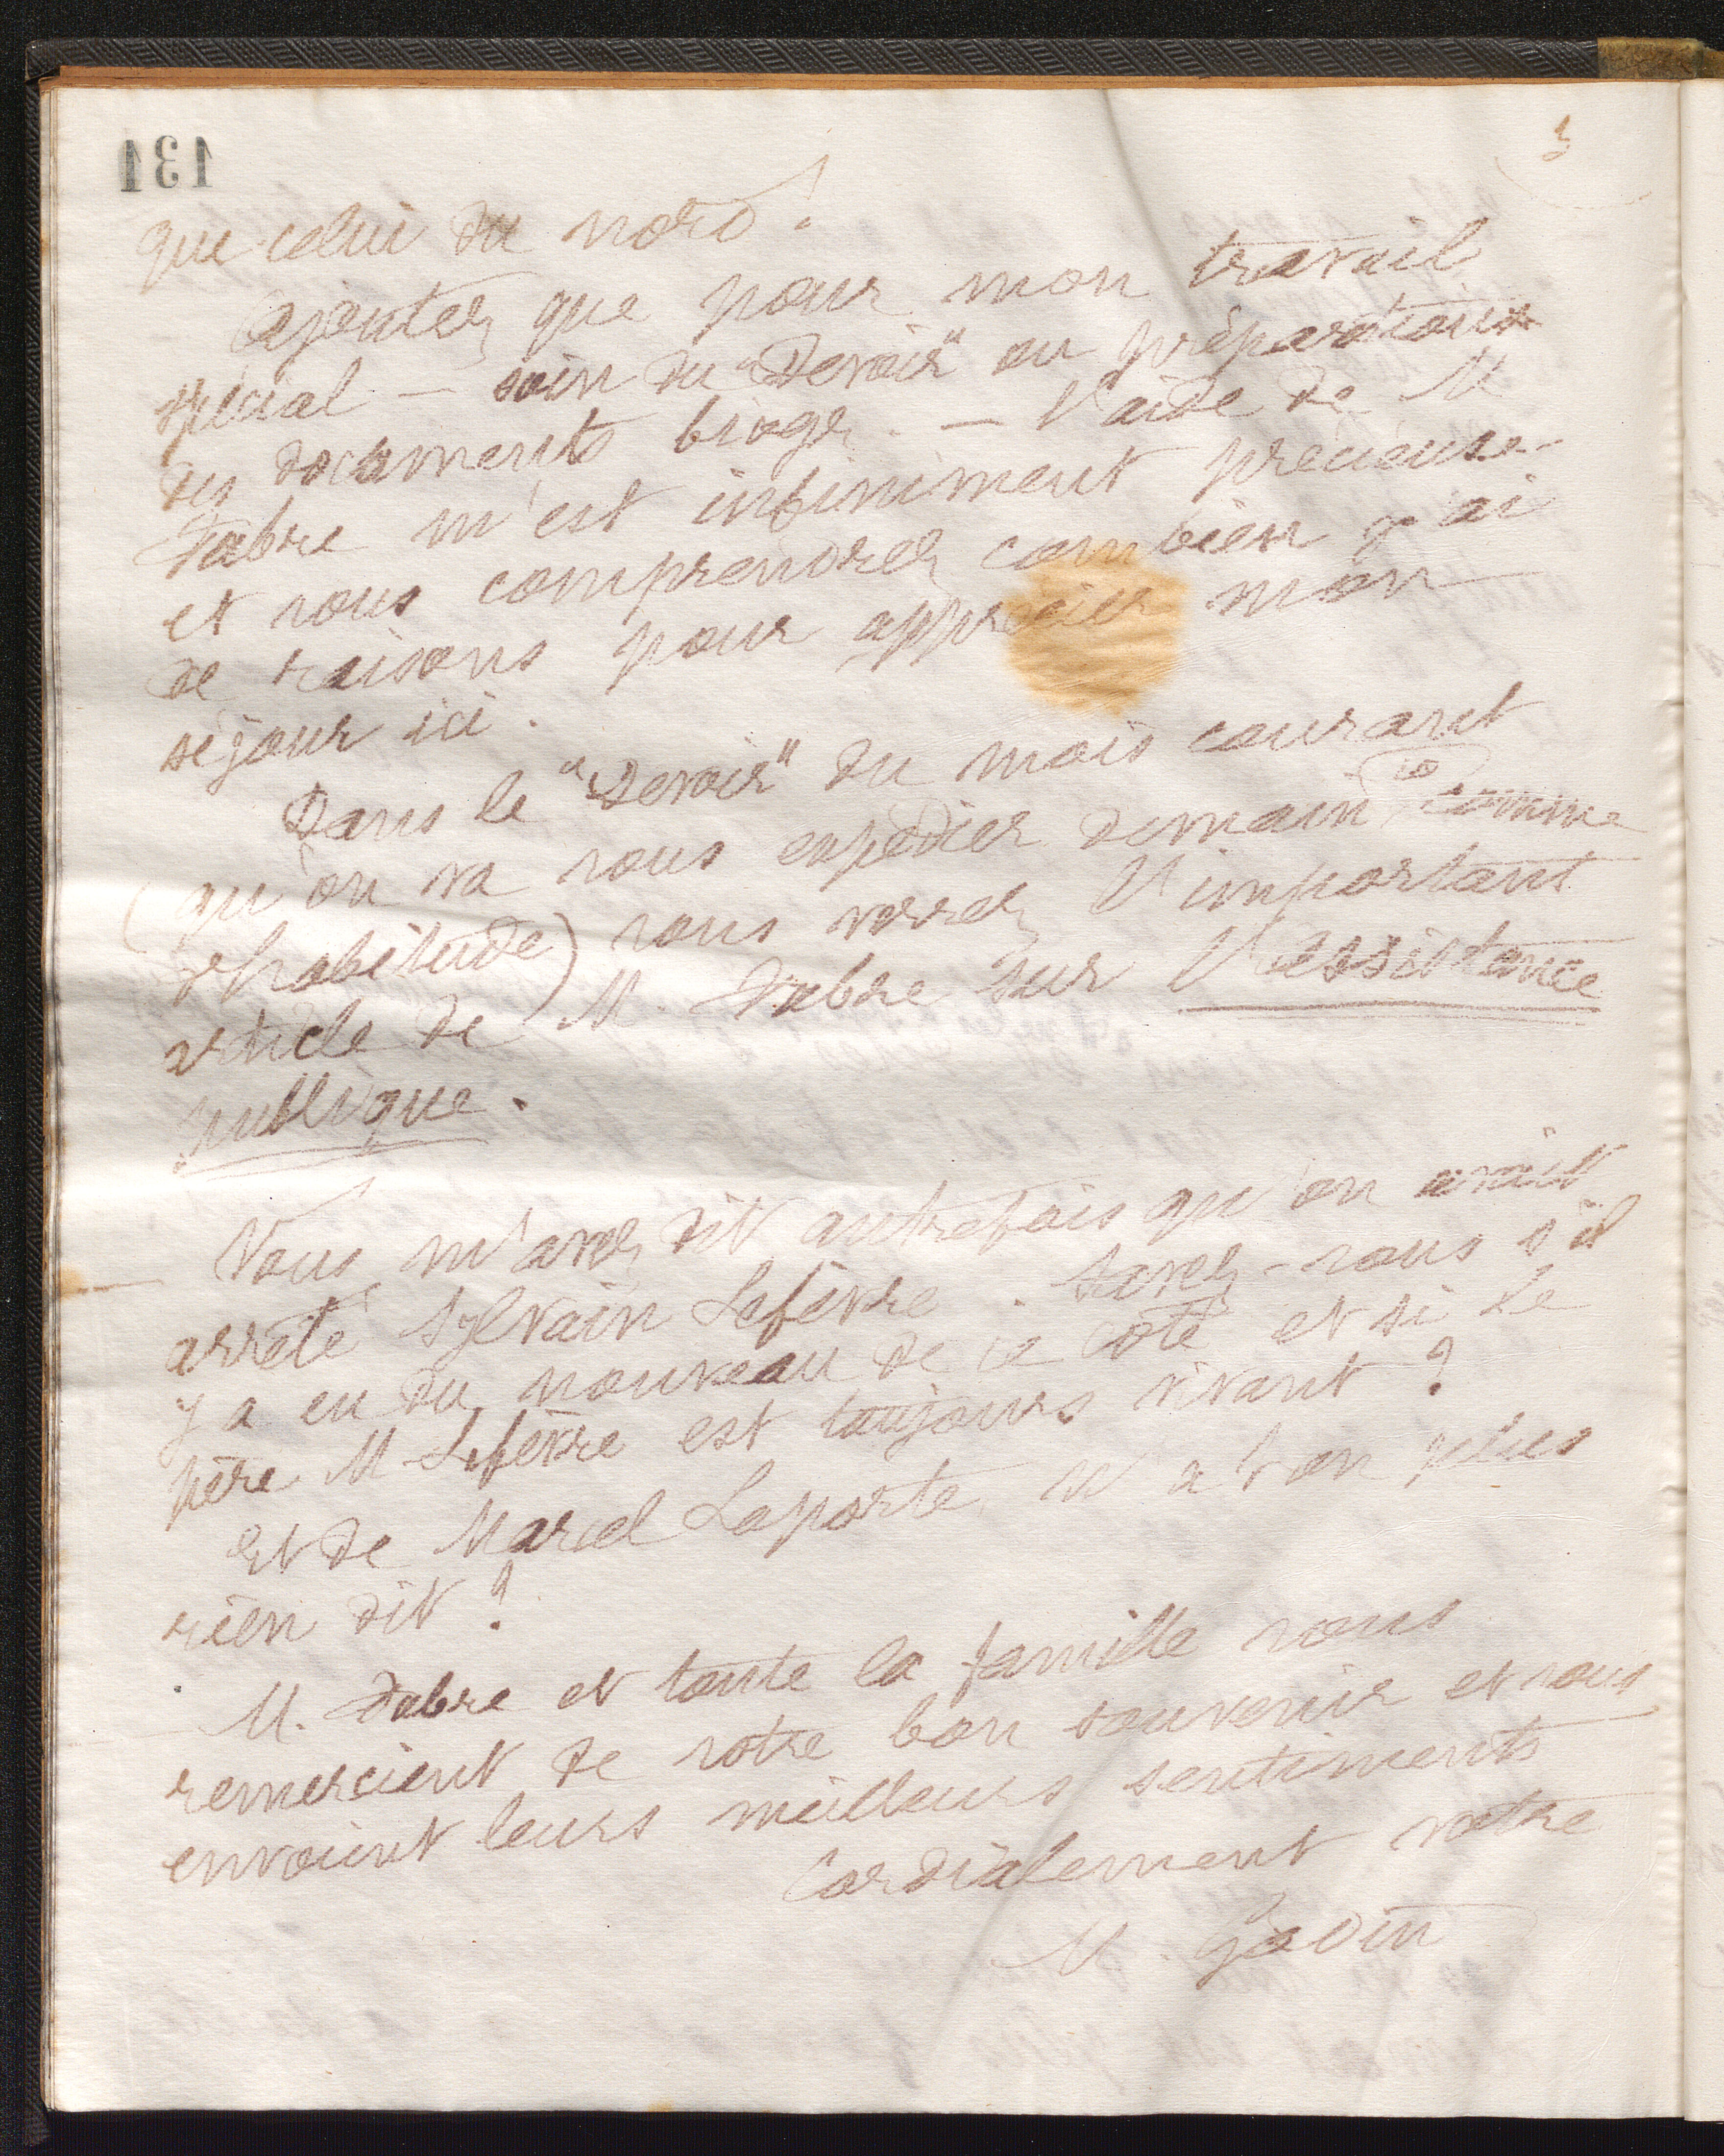 131
3
que celui du nord !
Ajoutez que pour mon travail
spécial – soin du "Devoir" ou préparations
des documents biogr. – l'aide de M
Fabre m'est infiniment précieuse
et vous comprendrez combien j'ai
de raisons pour apprécier mon
séjour ici.
Dans le "Devoir" du mois courant
(qu'on va vous expédier demain comme
d'habitude) vous verrez l'important
article de M. Fabre sur l'assistance
publique.
Vous m'avez dit autrefois qu'on avait
arrêté Sylvain Lefèvre. Savez-vous s'il
y a eu du nouveau de ce côté et si le
père M Lefèvre est toujours vivant ?
Et de Marcel Laporte n'a t'on plus
rien dit ?
M. Fabre et toute la famille vous
remercient de votre bon souvenir et vous
envoient leurs meilleurs sentiments
Cordialement votre
M. Godin